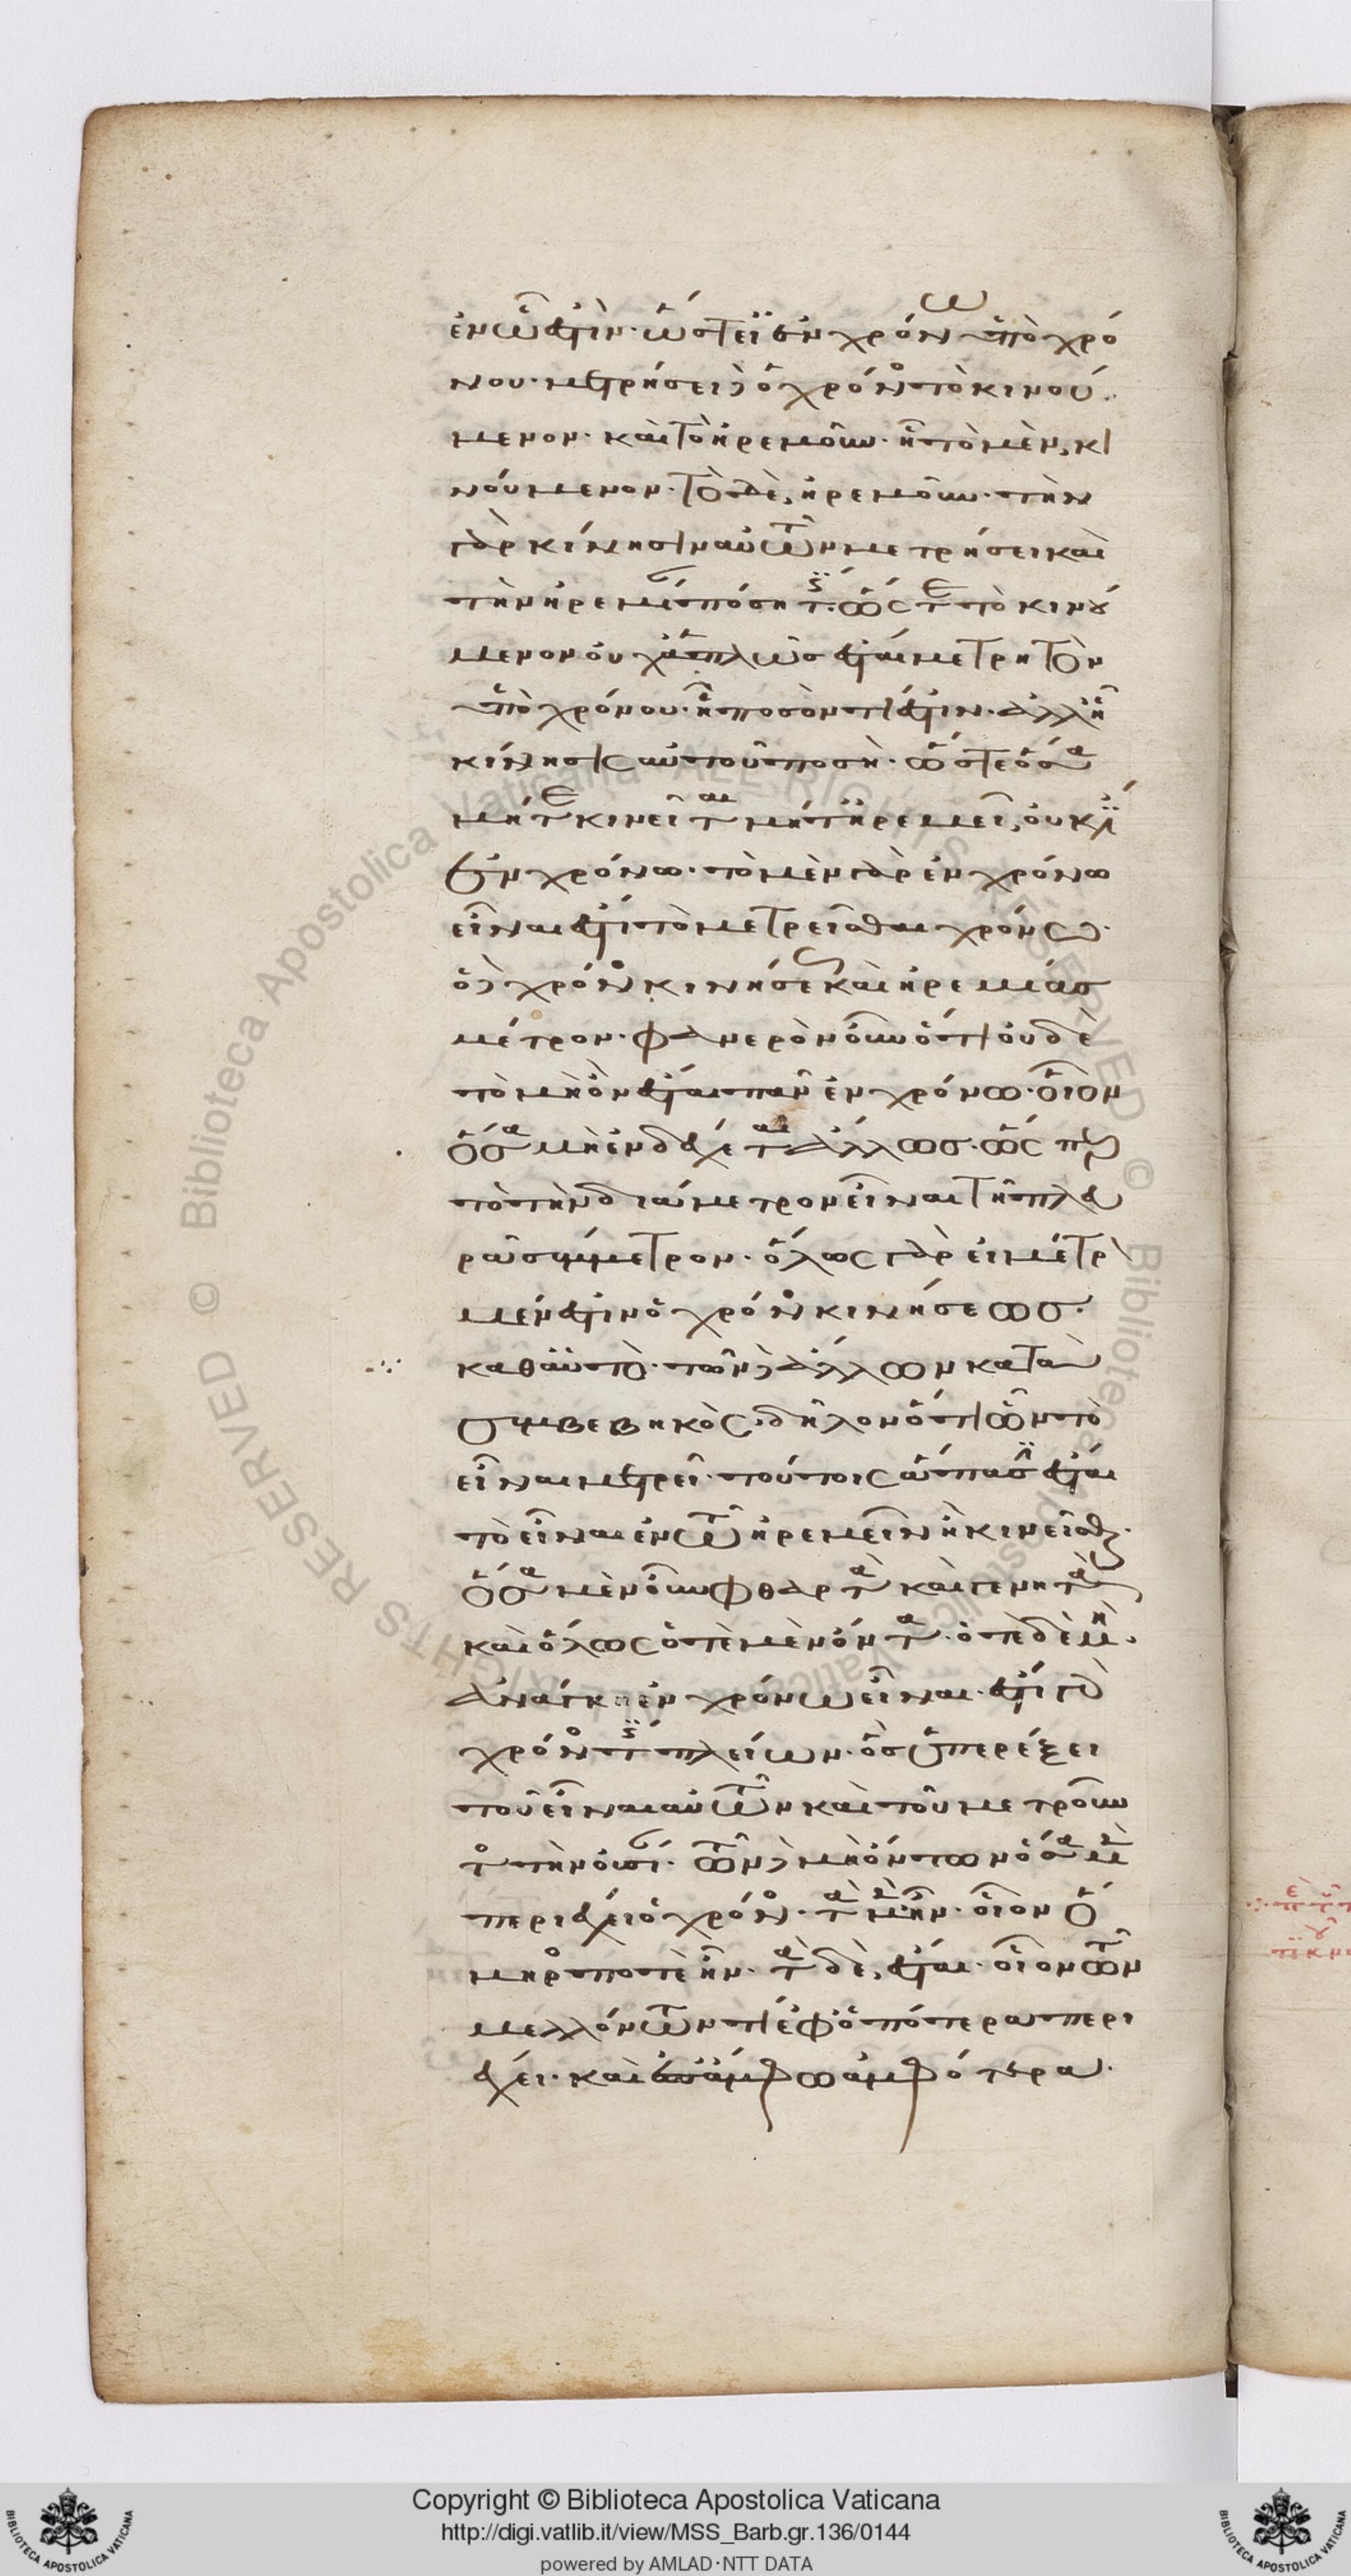 ἐν ὧ ἐστίν· ὥστ' εἰ ἐν χρόνω ὑπὸ χρό
νου· μετρήσει δ' ὁ χρόνος τὸ κινού
μενον· καὶ τὸ ἠρεμοῦν· ἧ τὸ μὲν, κι
νούμενον· τὸ δὲ, ἠρεμοῦν· τὴν
γὰρ κίνησιν αὐτῶν μετρήσει καὶ
τὴν ἠρεμίαν πόση τις· ὥστε τὸ κινού
μενον οὐχ ἁπλῶς ἔσται μετρητὸν
ὑπὸ χρόνου· ἧ ποσόν τι ἐστιν· ἀλλ' ἧ
κίνησις αὐτοῦ ποσή· ὥστε ὅσα
μήτε κινεῖται μήτ' ἠρεμεῖ, οὐκ ἔστιν
ἐν χρόνω· τὸ μὲν γὰρ ἐν χρόνω
εἶναι ἐστὶ τὸ μετρεῖσθαι χρόνω·
ὁ δὲ χρόνος κινήσεως καὶ ἠρεμίας
μέτρον· φανερὸν οὖν ὅτι οὐδὲ
τὸ μὴ ὂν ἔσται πᾶν ἐν χρόνω· οἷον
ὅσα μὴ ἐνδέχεται ἄλλως· ὥσπερ
τὸ τὴν διάμετρον εἶναι τῆ πλευ
ρᾶ σύμμετρον· ὅλως γὰρ εἰ μέτρον
μέν ἐστιν ὁ χρόνος κινήσεως·
καθαὑτὸ· τῶν δ' ἄλλων κατὰ
συμβεβηκὸς· δῆλον ὅτι ὧν τὸ
εἶναι μετρεῖ· τούτοις ἅπασιν ἔσται
τὸ εἶναι ἐν τῶ ἠρεμεῖν ἢ κινεῖσθαι·
ὅσα μὲν οὖν φθαρτὰ καὶ γενητὰ
καὶ ὅλως ὁτὲ μὲν ὄντα· ὁτὲ δὲ μὴ·
ἀνάγκη ἐν χρόνω εἶναι· ἔστι γὰρ
χρόνος τις πλείων· ὃς ὑπερέξει
τοῦ εἶναι αὐτῶν καὶ τοῦ μετροῦν
τος τὴν οὐσίαν· τῶν δὲ μὴ ὄντων ὅσα μὲν
περιέχει ὁ χρόνος· τὰ μὲν ἦν· οἷον ὅ
μηρος ποτὲ ἦν· τὰ δὲ, ἔσται· οἷον τῶν
μελλόντων τι ἐφ' ὁπότερα περι
έχει· καὶ εἰ ἐπ' ἄμφω ἀμφότερα·